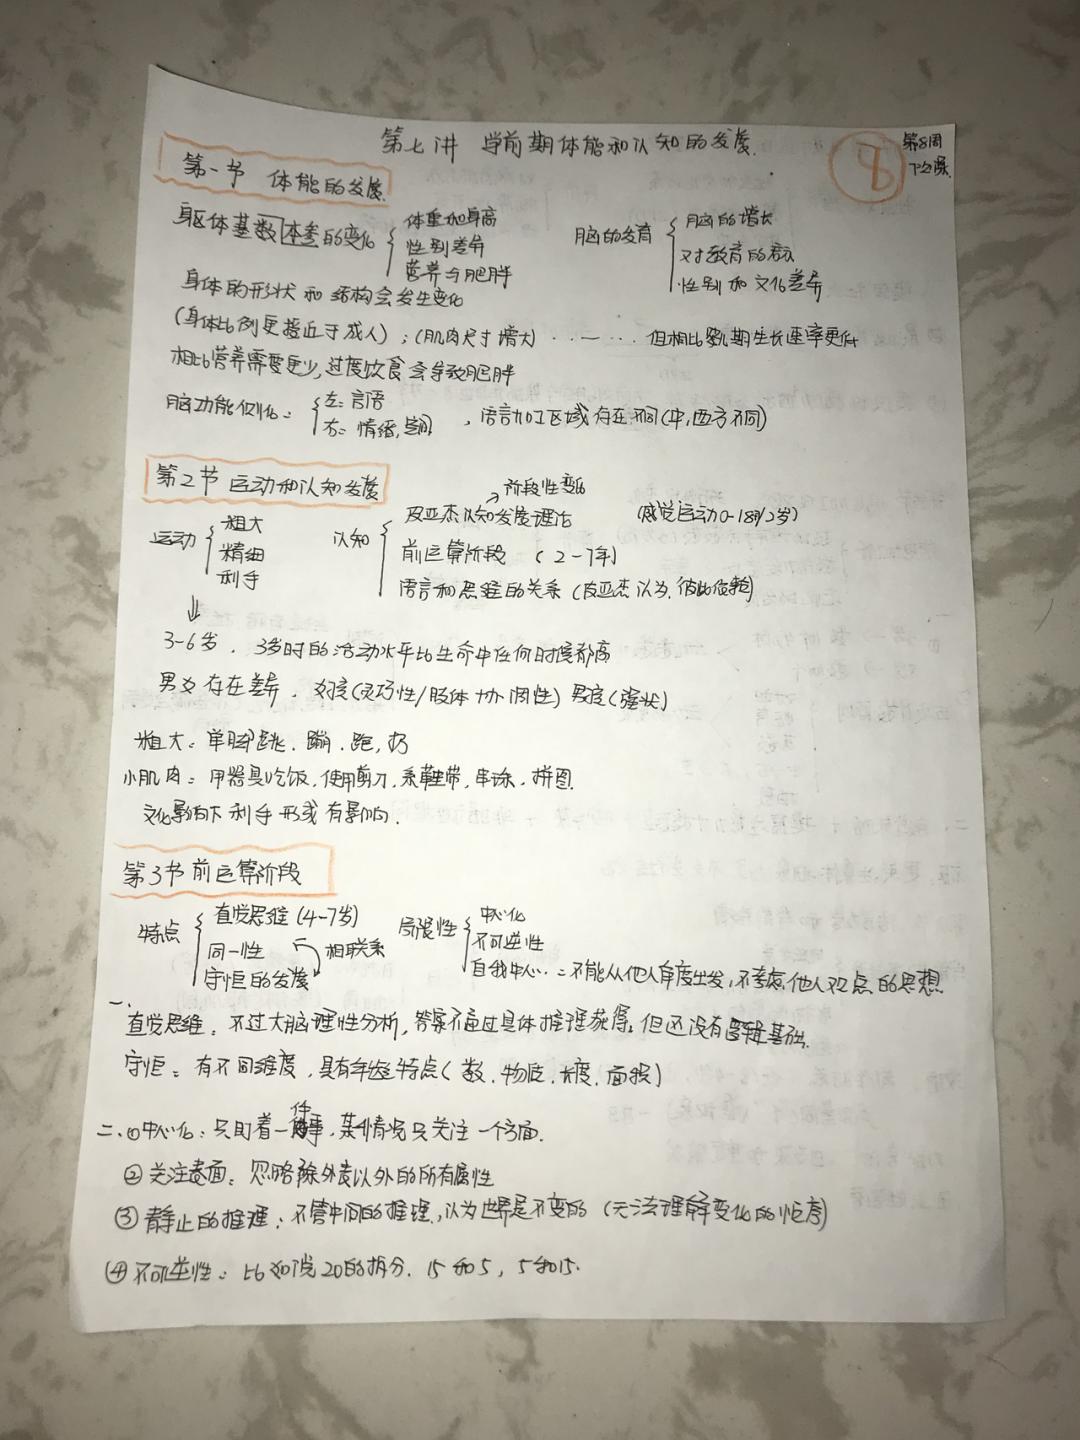 第七讲 学前期体能和认知的发展.
8
第8周
下之课
第一节 体能的发展.
躯体基数本参的变化 { 体重和身高
性别差异
营养与肥胖
脑的发育 { 脑的增长
对教育的启示
性别和文化差异
身体的形状和结构会发生变化
(身体比例更接近于成人);(肌肉尺寸增大)..一... 但相比婴儿期生长速率更低
相比营养需要更少,过度饮食会导致肥胖
脑功能侧化: { 左:言语
右:情绪,空间
,语言加工区域存在不同(中,西方不同)
第2节 运动和认知发展
运动 { 粗大
精细
利手
→阶段性变化
认知 { 皮亚杰认知发展理论 (感觉运动0-18月/2岁)
前运算阶段 (2-7年)
语言和思维的关系(皮亚杰认为.彼此依赖)
3-6岁. 3岁时的活动水平比生命中任何时候都高
男女存在差异. 女孩(灵巧性/肢体协调性) 男孩(强状)
粗大:单脚跳.蹦.跑,扔
小肌肉:用器具吃饭,使用剪刀.系鞋带,串珠,拼图.
文化影响下利手形成有影响.
第3节 前运算阶段
特点 { 直觉思维(4-7岁)
同一性
守恒的发展
相联系
局限性 { 中心化
不可逆性
自我中心..:不能从他人角度出发,不考虑他人观点的思想.
一、
直觉思维:不过大脑理性分析,答案不通过具体推理获得.但还没有逻辑基础.
守恒:有不同维度,具有年龄特点(数.物质.长度.面积)
二、①中心化:只盯着一件事,某个情况只关注一个方面.
②关注表面:忽略除外表以外的所有属性
③静止的推理:不管中间的推理,认为世界是不变的(无法理解变化的顺序)
④不可逆性:比如说20的拆分.15和5,5和15.